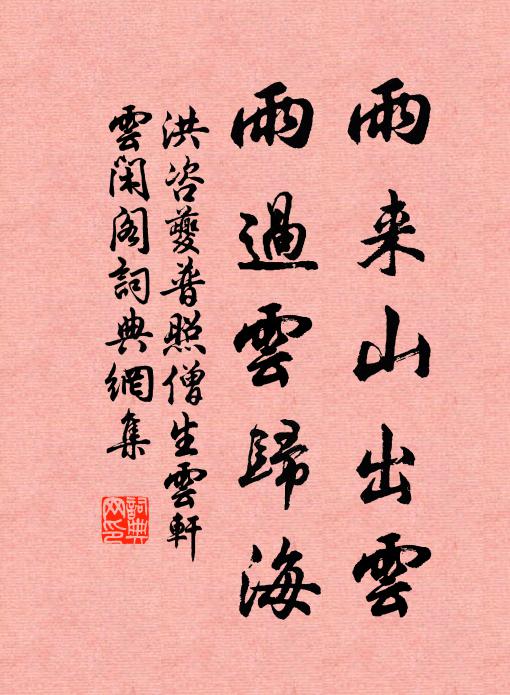 雨来山出雲
雨過雲歸海
洪咨夔普照僧生雲軒
雲閑阁詞典網集
詞典
网印